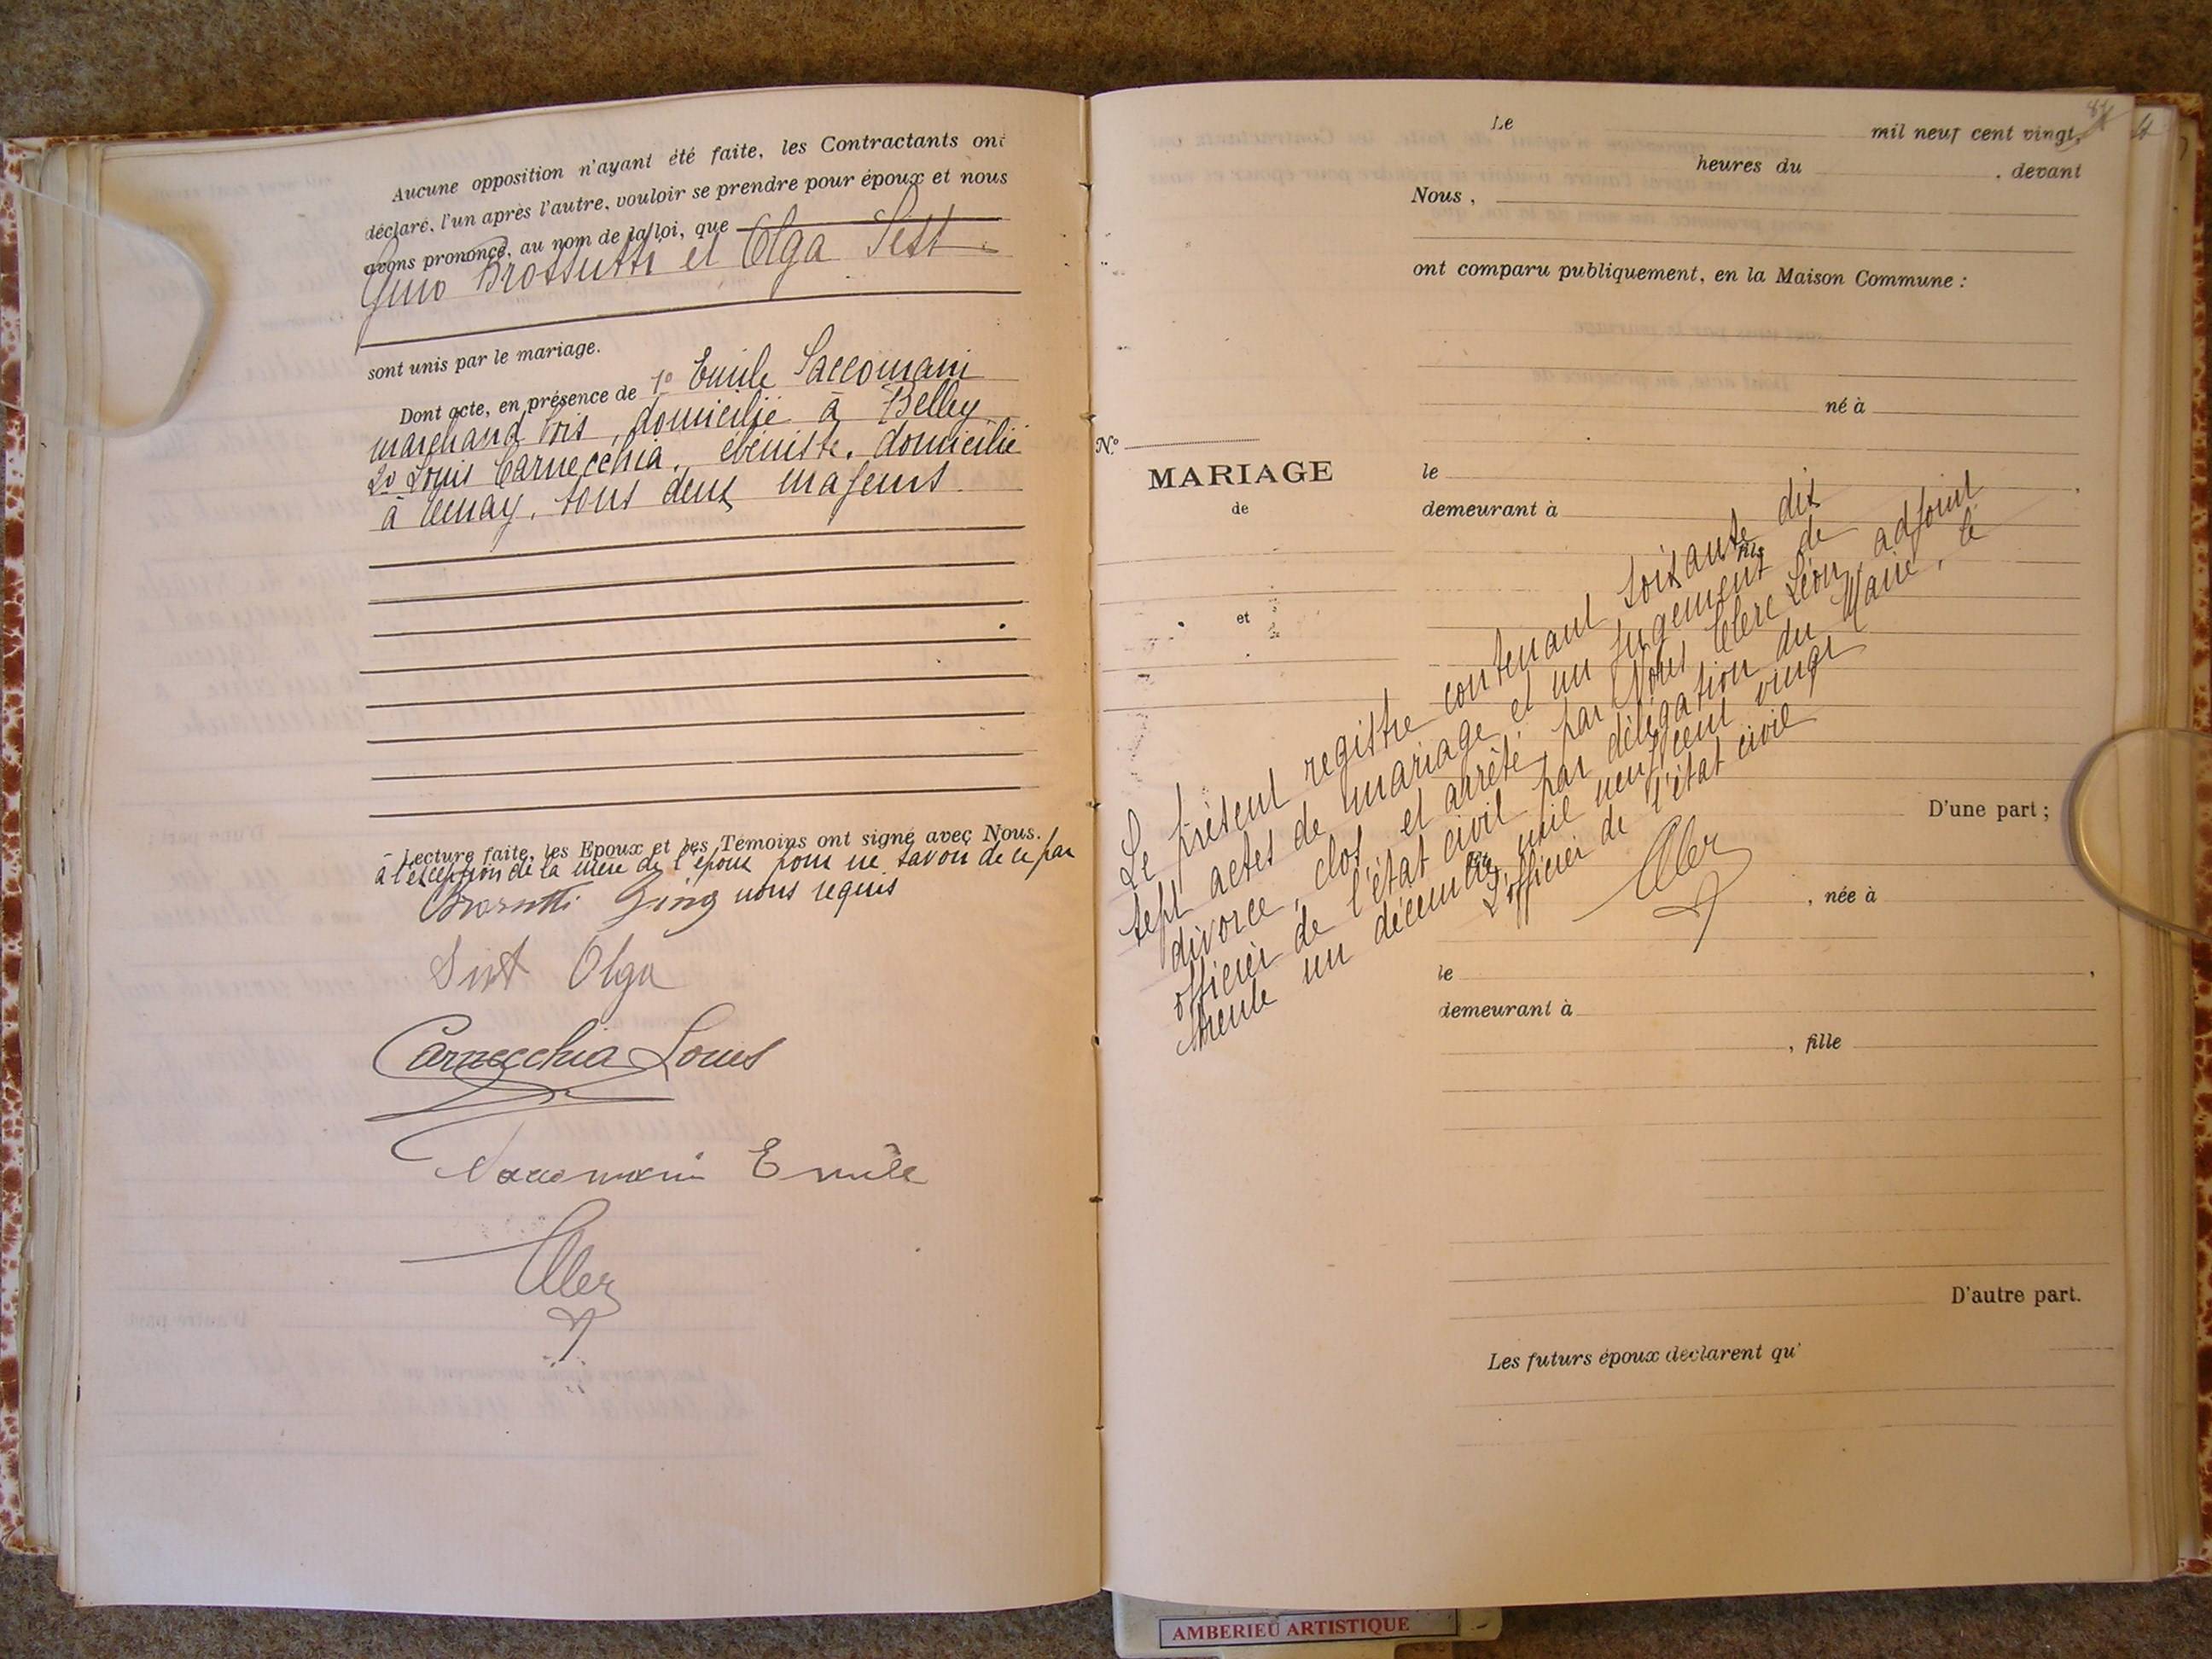 Aucune opposition n'ayant été faite, les Contractants ont
déclaré, l'un après l'autre, vouloir se prendre pour époux et nous
avons prononcé, au nom de la loi, que
Gino Brossutti et Olga Sist
sont unis par le mariage.
Dont acte, en présence de 1º Emile Saccomani
marchand bois, domicilié à Belley
2º Louis Carnecchia, ébéniste, domicilié
à tous deux majeurs
Lecture faite, les Epoux et les Témoins ont signé avec Nous.
à l'exception de la mère de l'époux pour ne savoir de ce par
nous requis
Brosutti Gino
Sist Olga
Carnecchia Louis
Saccomani Emile
Clerc
Le mil neuf cent vingt,
heures du , devant
Nous,
ont comparu publiquement, en la Maison Commune :
né à
N.º
MARIAGE
de
et
le
demeurant à
Le présent registre contenant soixante dix
sept actes de mariage et un jugement de
divorce, clos et arrêté par Nous Clerc Léon adjoint
officier de l'état civil par délégation du Maire, le
trente un décembre mil neuf cent vingt
L'officier de l'état civil
Clerc
D'une part ;
, née à
le ,
demeurant à
, fille
D'autre part.
Les futurs époux déclarent qu'
AMBERIEU ARTISTIQUE